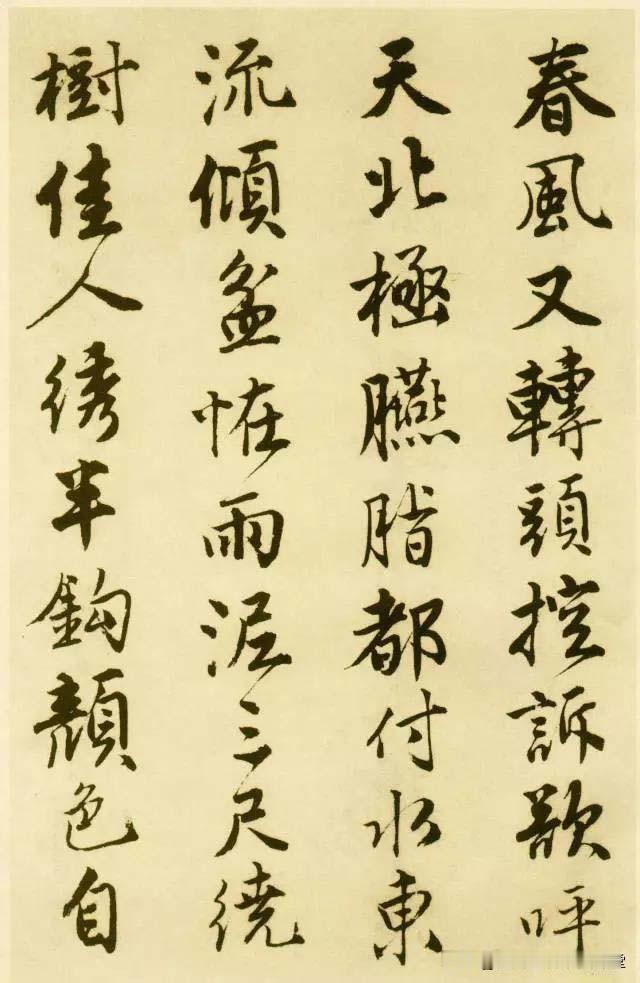 春風又轉頭控訴欲呼
天北極臙脂都付水東
流傾盆恠雨泥三尺繞
樹佳人綉半鈎顏色自